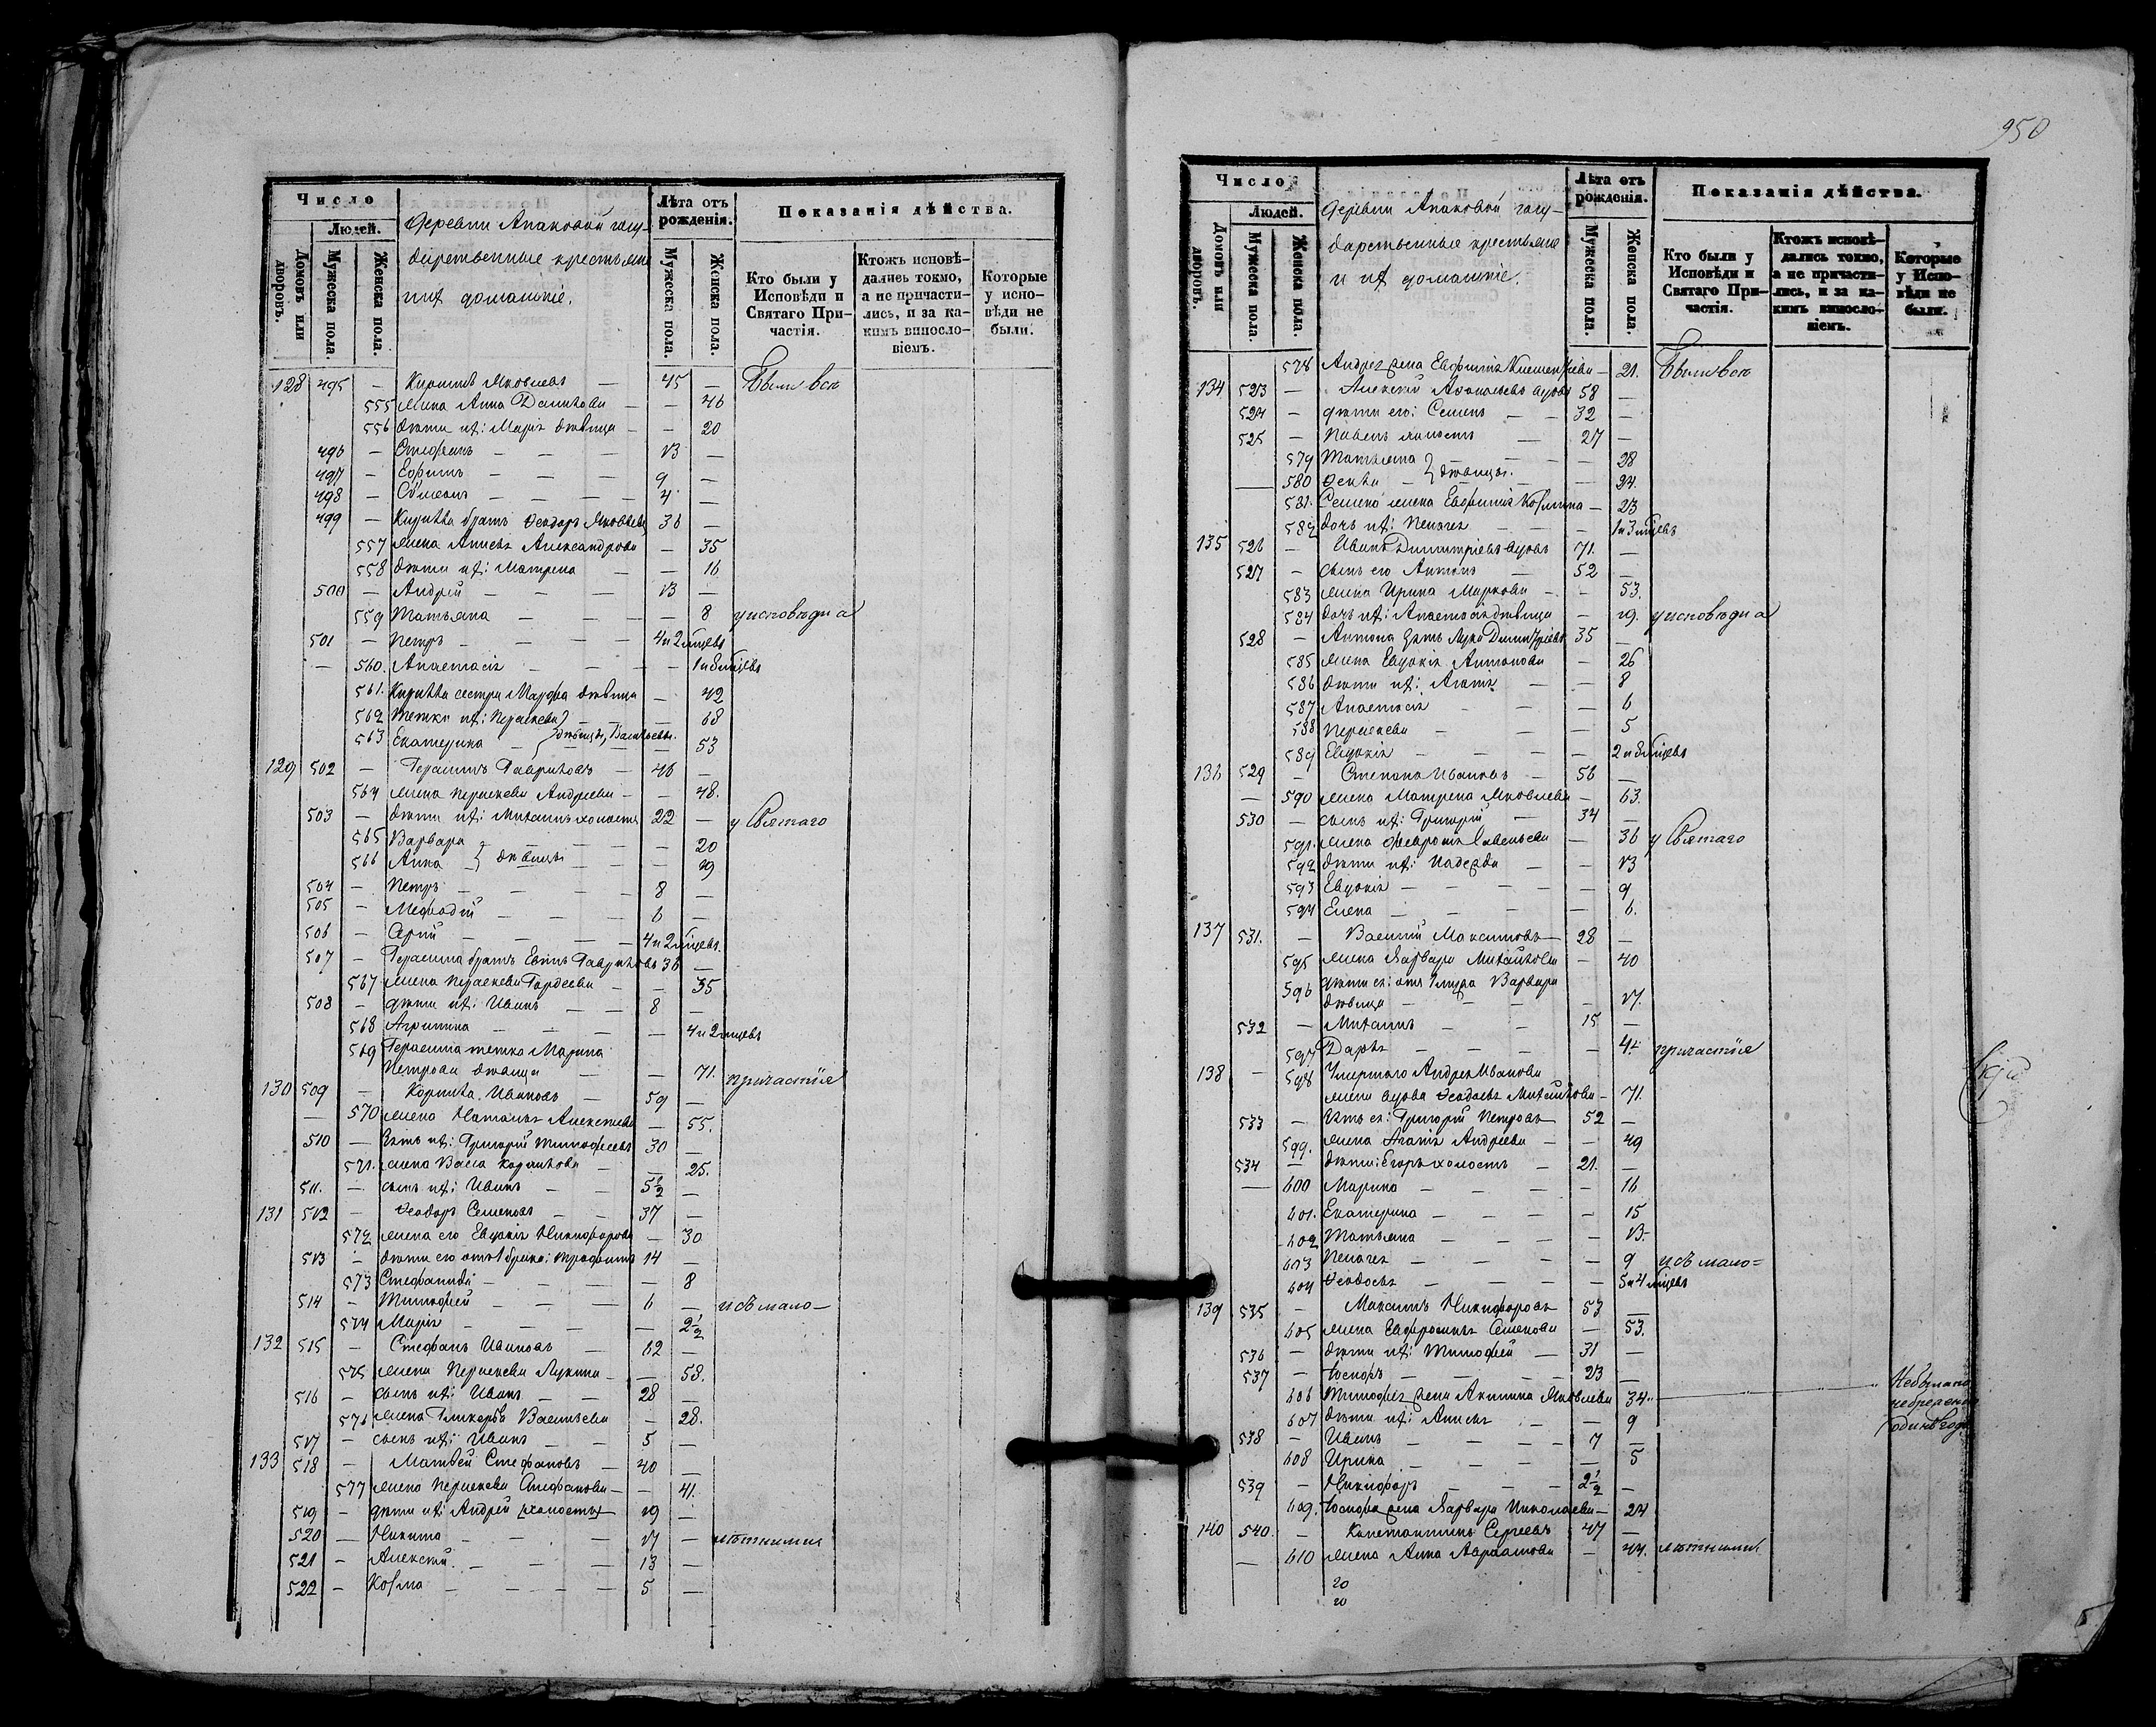 Число
Людей.
Домовъ или дворовъ.
Мужеска пола.
Женска пола.
Деревни Апаковой госу-
дарственные крестьяне
и ихъ домашніе.
Лѣта отъ рожденія.
Мужеска пола.
Женска пола.
Показанія дѣйства.
Кто были у Исповѣди и Святаго При-частія.
Ктожъ исповѣ-дались токмо, а не причасти-лись, и за ка-кимъ винослo-віемъ.
Которые у испо-вѣди не были.
128 495 — Яковлевъ — 45 — Были всѣ
555 жена Анна — — 46
556 дѣти ихъ: Марія дѣвица — — 20
496 — Стефанъ — — — 13 —
497 — Ефимъ — — — 9 —
498 — Сѵмеонъ — — — 4 —
499 — братъ Ѳеодоръ Яковлевъ 36 —
557 жена Александрова — 35
558 дѣти ихъ: Матрена — — 16
500 — Андрей — — — 13 —
559 Татьяна — — — — 8 у исповѣди и
501 — Петръ — — — 4 и 2 мѣсцевъ
— 560. Анастасія — — — — 1 и 8 мѣсцевъ
561. сестра Марфа дѣвица — 42
562 тетки ихъ: Параскева — — — 68
563 Екатерина — } дѣвицы, Васильевы. 53
129 502 — Герасимъ Гавриловъ — 46 —
564 жена Параскева Андреева — — 48.
503 — дѣти ихъ: Михаилъ холостъ 22 — у Святаго
565 Варвара — — — — — 20
566 Анна — } дѣвицы — — 19
504 — Петръ — — — — 8 —
505 — Мефодій — — — — 6 —
506 — — — — 4 и 2 мѣсцевъ
507 — Герасима братъ Гавриловъ 36 —
567 жена Параскева Гордеева — — 35
508 — дѣти ихъ: Иванъ — — 8 —
568 Агрипина — — — — 4 и 2 мѣсцевъ
569 Герасима тетка Марина
Петрова дѣвица — — 71. причастія
130 509 — Иванова — 59 —
— 570 жена Наталья Алексѣева — 55.
510 — зять ихъ: Григорій Тимофеевъ 30 —
571. жена Васса — — 25.
511. — сынъ ихъ: Иванъ — — 5½ —
131 512 — Ѳеодоръ Семеновъ — — 37 —
572 жена его Евдокія Никифорова — 30
513 — дѣти его отъ 1 брака: Трофимъ 14 —
573 Стефанида — — — — 8
514 — Тимофей — — — 6 — и съ мало-
574 Марія — — — — — 2½
132 515 — Стефанъ Ивановъ — 62 —
575 жена Параскева Лукина — — 58.
516 — сынъ ихъ: Иванъ — — 28 —
576 жена Гликерія Васильева — 28.
517 — сынъ ихъ: Иванъ — — 5 —
133 518 — Матвей Стефановъ — 40 —
577 жена Параскева Стефанова — — 41.
519 — дѣти ихъ: Андрей (холостъ) — 19 —
520 — Никита — — — 17 — лѣтними
521 — Алексѣй — — — 13 —
522 — Козма — — — — 5 —
950
Число
Людей.
Домовъ или дворовъ.
Мужеска пола.
Женска пола.
Деревни Апаковой госу-
дарственные крестьяне
и ихъ домашніе.
Лѣта отъ рожденія.
Мужеска пола.
Женска пола.
Показанія дѣйства.
Кто были у Исповѣди и Святаго При-частія.
Ктожъ исповѣ-дались токмо, а не причасти-лись, и за ка-кимъ винослo-віемъ.
Которые у Испо-вѣди не были.
578 Андрея жена Евфимія — 21. Были всѣ
134 523 — Алексѣй вдовъ 58 —
524 — дѣти его: Семенъ — — 32 —
525 — Павелъ холостъ — 27 —
579 Татьяна } — — — 28
580 } дѣвицы. — — 24.
581. Семена жена Евфимія Козмина — 23
582 дочь ихъ: Пелагея — — — 1 и 3 мѣсцевъ
135 526 — Иванъ Димитріевъ вдовъ 71. —
527 — сынъ его Антонъ — 52 —
583 жена Ирина Маркова — — 53.
584 дочь ихъ: Анастасія дѣвица — 19. у исповѣди и
528 — Антона зять Лука Димитріевъ 35 —
585 жена Евдокія Антонова — 26
586 дѣти ихъ: Агафія — — 8
587 Анастасія — — — 6
588 Параскева — — — 5
589 Евдокія — — — — 2 и 8 мѣсцевъ
136 529 — Степанъ Ивановъ — 56 —
— 590 жена Матрена Яковлева — 63.
530 — сынъ ихъ: Григорій — 34 —
591. жена Феврония Савельева — 36 у Святаго
592 дѣти ихъ: Надежда — — 13
593 Евдокія — — — — 9
594 Елена — — — — 6.
137 531. — Василій Максимовъ — 28 —
595 жена Варвара Михайлова — 40
596 дѣти ея: отъ 1 мужа Варвара
дѣвица — — — — 17.
532 — Михаилъ — — 15 —
597 Дарья — — — — 4. причастія
138 — 598 Умершаго Андрея Иванова
жена вдова Ѳеодосья Михайлова — 71.
533 — зять ея: Григорій Петровъ 52 —
599. жена Агафія Андреева — — 49
534 — дѣти: Егоръ холостъ — 21. —
— 600 Марина — — — — 16
601. Екатерина — — — — 15
602 Татьяна — — — — 13-
603 Пелагея — — — — 9 и съ мало=
604 Ѳеодосья — — — — 5 и 4 мѣсцевъ
139 535 — Максимъ Никифоровъ 53 —
605 жена Евфросинья Семенова — 53.
536 — дѣти ихъ: Тимофей — 31 —
537 — Іосифъ — — — — 23 —
606 Тимофея жена Акилина Яковлева 34. Небыла по
небреженію
один годъ
607 дѣти ихъ: — — 9
538 — Иванъ — — — — 7 —
608 Ирина — — — — 5
539 — Никифоръ — — — 2½ —
609. Іосифа жена Варвара Николаева — 24
140 540. — Константинъ Сергеевъ 47 —
— 610 жена Анна Авраамова — 44. лѣтними
20
20